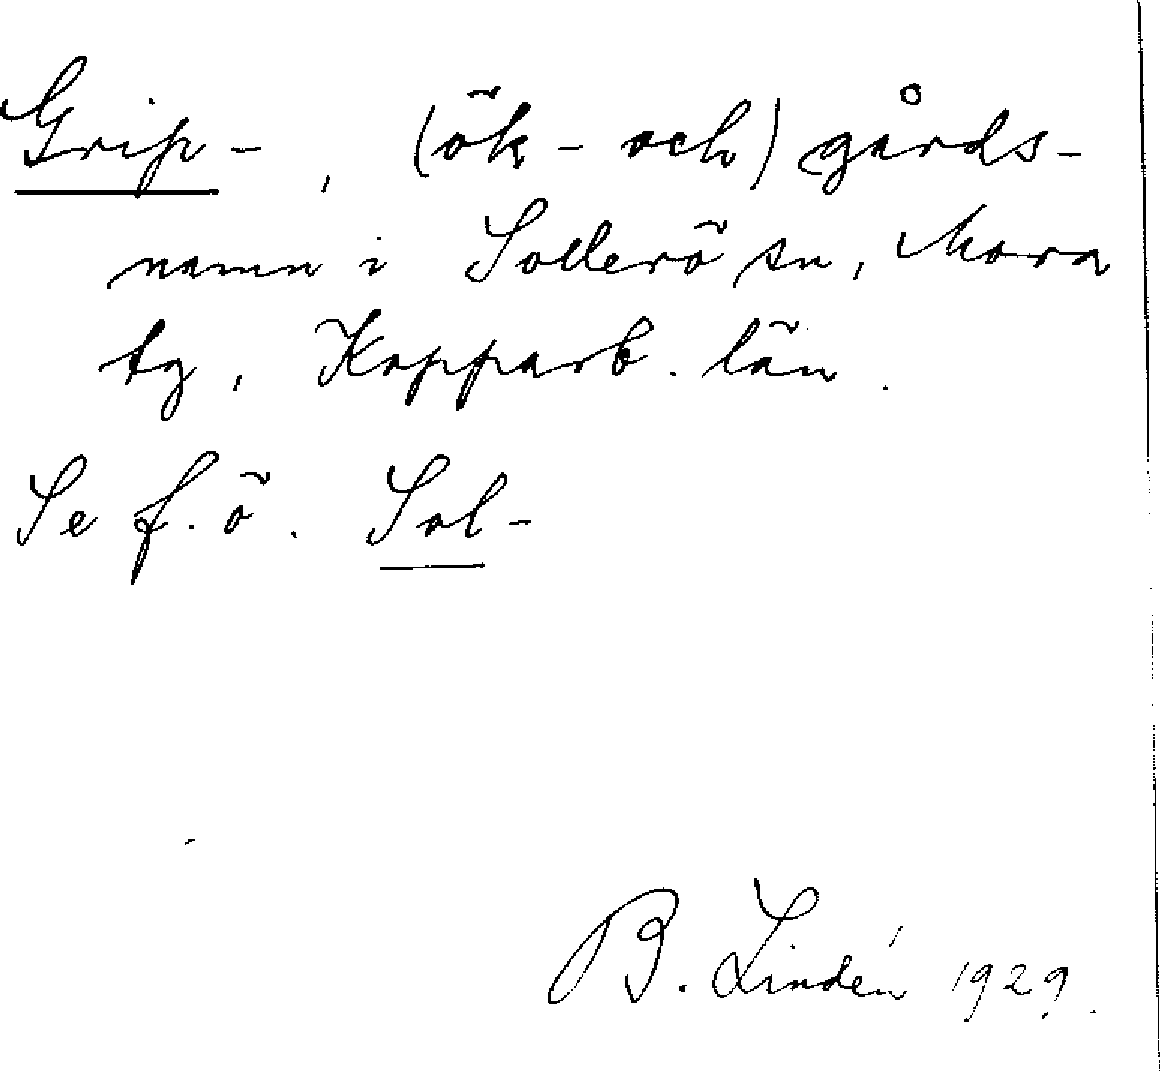 Grip-, (ök- och) gårds-
namn i Sollerö sn, Mora
tg, Kopparb. län.
Se f.ö. Sol-
B. Lindén 1929.